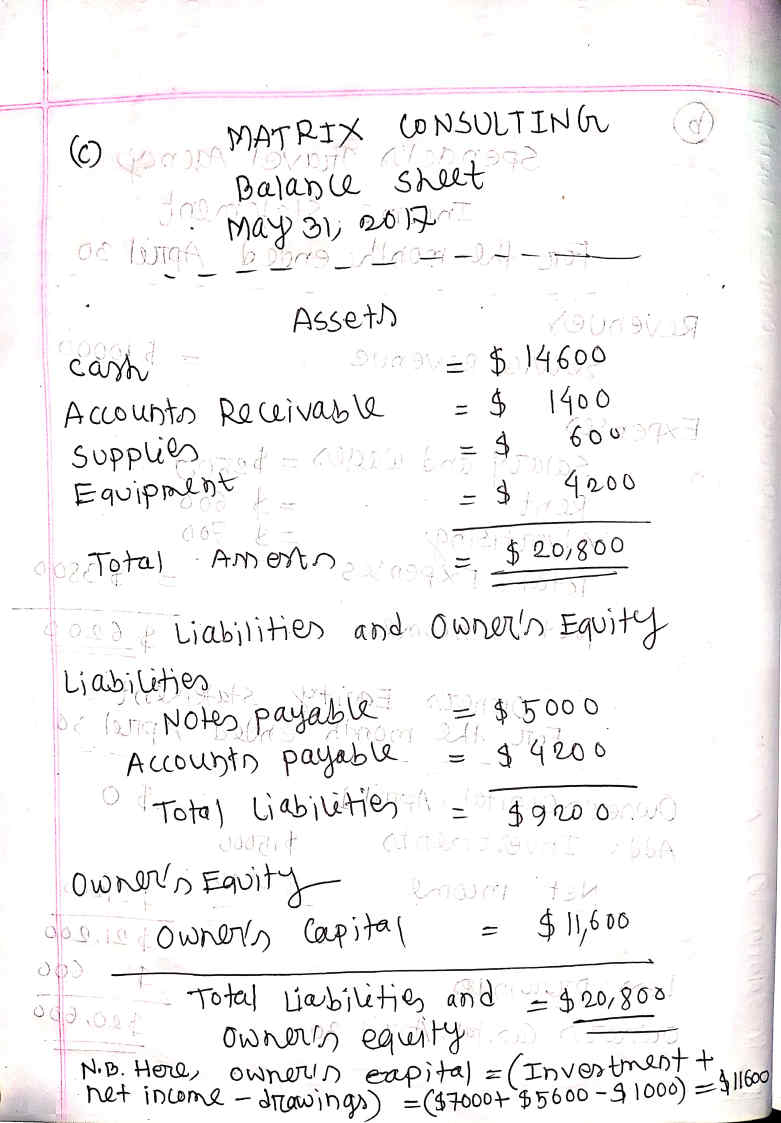 (c) MATRIX CONSULTING
Balance sheet
May 31, 2017
Assets
cash = $ 14600
Accounts Receivable = $ 1400
Supplies = $ 600
Equipment = $ 4200
Total Assests = $ 20,800
Liabilities and Owner's Equity
Liabilities
Notes payable = $ 5000
Accounts payable = $ 4200
Total Liabilities = $9200
Owner's Equity
Owner's Capital = $ 11,600
Total Liabilities and = $ 20,800
Owner's equity
N.B. Here, owner's capital = (Investment +
net income - drawings) = ($7000+ $5600 - $1000) = $11600